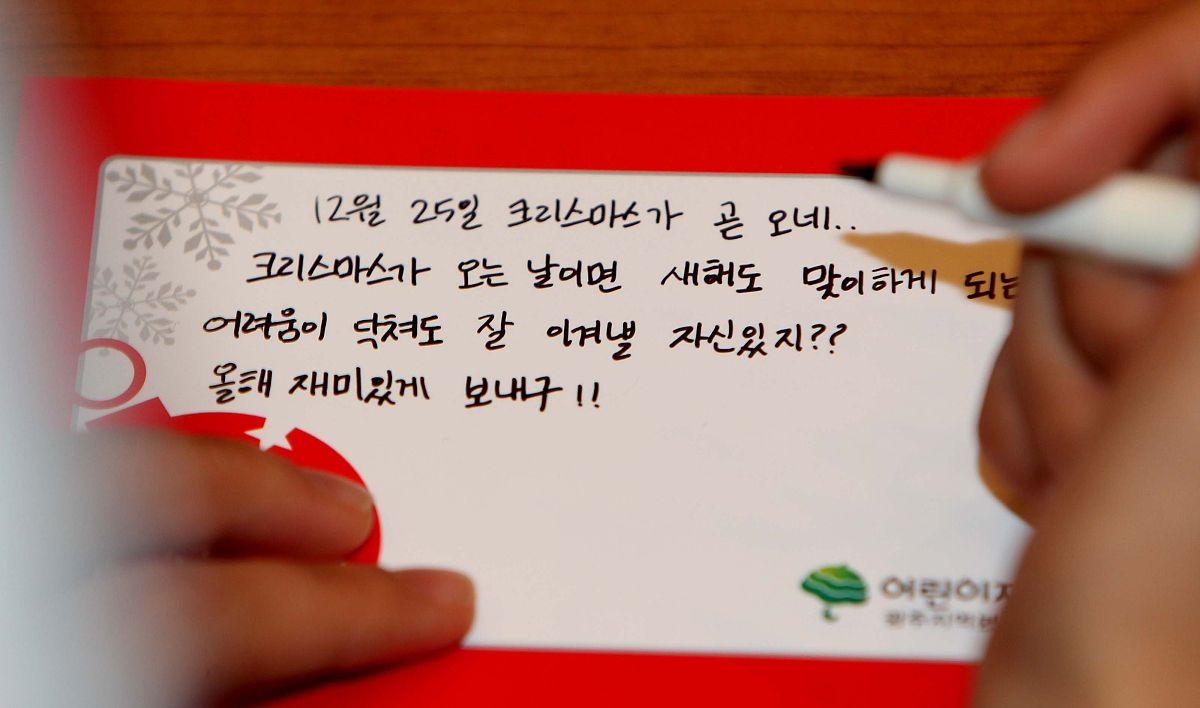 12월 25일 크리스마스가 곧 오네..
크리스마스가 오는 날이면 새해도 맞이하게 되는
어려움이 닥쳐도 잘 이겨낼 자신있지??
올해 재미있게 보내구!!
어린이재
광주지역본